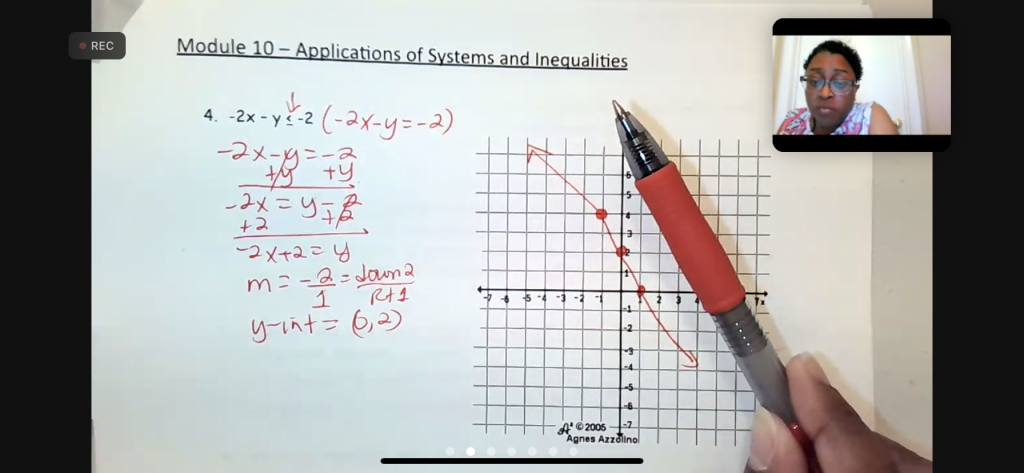 REC
Module 10 – Applications of Systems and Inequalities
4. -2x - y ≤ -2 (-2x-y=-2)
-2x-y=-2
+y +y
-2x = y-2
+2 +2
-2x+2=y
m = -2/1 = down 2/Rt 1
y-int = (0,2)
6
5
4
3
2
1
-7 -6 -5 -4 -3 -2 -1 1 2 3 4 7 x
-1
-2
-3
-4
-5
-6
-7
© 2005
Agnes Azzolino